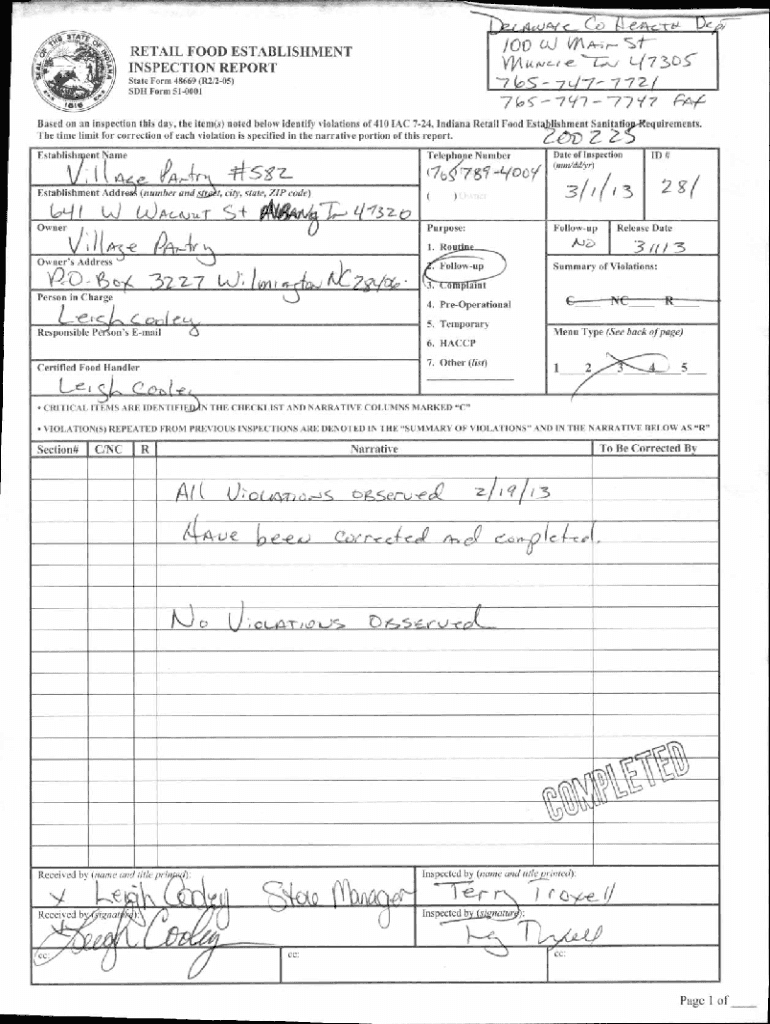 DELAWARE CO HEALTH Dept
100 W MAIN ST
MUNCIE IN 47305
765-747-7721
765-747-7747 FAX
SEAL OF THE STATE OF INDIANA
1816
RETAIL FOOD ESTABLISHMENT
INSPECTION REPORT
State Form 48669 (R2/2-05)
SDH Form 51-0001
Based on an inspection this day, the item(s) noted below identify violations of 410 IAC 7-24, Indiana Retail Food Establishment Sanitation Requirements.
The time limit for correction of each violation is specified in the narrative portion of this report.
200225
Establishment Name
Village Pantry #582
Telephone Number
(765) 789-4004
( ) Owner
Date of Inspection
(mm/dd/yr)
3/1/13
ID #
281
Establishment Address (number and street, city, state, ZIP code)
641 W WALNUT St ALBANY IN 47320
Owner
Village Pantry
Purpose:
1. Routine
2. Follow-up
3. Complaint
4. Pre-Operational
5. Temporary
6. HACCP
7. Other (list)
Follow-up
NO
Release Date
31113
Owner's Address
P.O. Box 3227 Wilmington NC 28406
Summary of Violations:
C NC R
Person in Charge
Leigh Cooley
Responsible Person's E-mail
Menu Type (See back of page)
1 2 3 4 5
Certified Food Handler
Leigh Cooley
• CRITICAL ITEMS ARE IDENTIFIED IN THE CHECKLIST AND NARRATIVE COLUMNS MARKED "C"
• VIOLATION(S) REPEATED FROM PREVIOUS INSPECTIONS ARE DENOTED IN THE "SUMMARY OF VIOLATIONS" AND IN THE NARRATIVE BELOW AS "R"
Section# C/NC R Narrative To Be Corrected By
All Violations observed 2/19/13
Have been corrected and completed.
No Violations Observed
COMPLETED
Received by (name and title printed):
x Leigh Cooley Store Manager
Inspected by (name and title printed):
Terry Troxell
Received by (signature):
x Leigh Cooley
Inspected by (signature):
cc:
cc:
cc:
Page 1 of